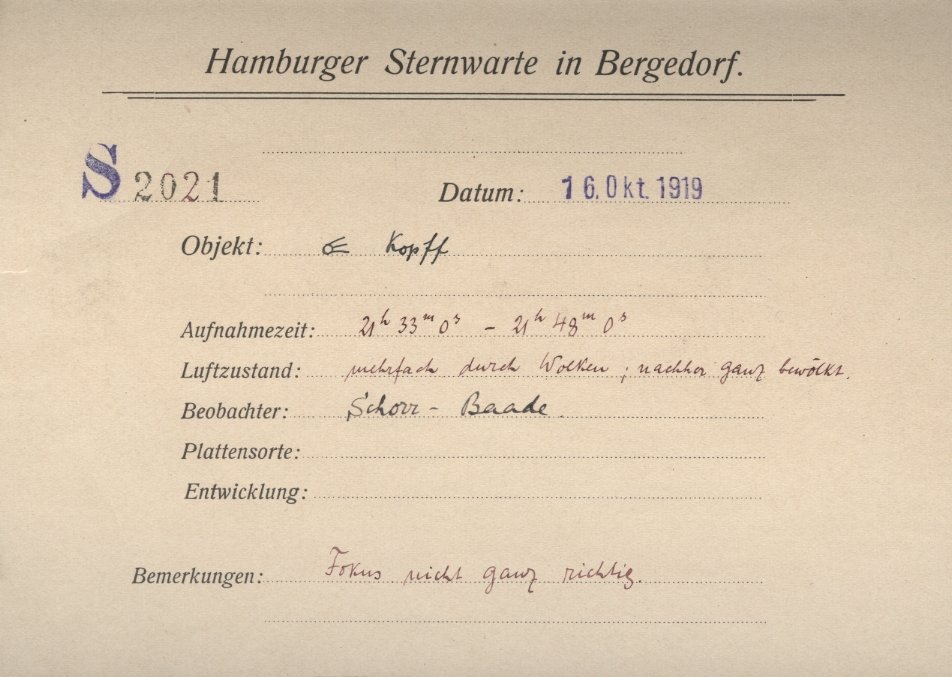 Hamburger Sternwarte in Bergedorf.
S 2021 Datum: 16. Okt. 1919
Objekt: ☄ Kopff
Aufnahmezeit: 21h 33m 0s – 21h 48m 0s
Luftzustand: mehrfach durch Wolken; nachher ganz bewölkt.
Beobachter: Schorr – Baade.
Plattensorte:
Entwicklung:
Bemerkungen: Fokus nicht ganz richtig.